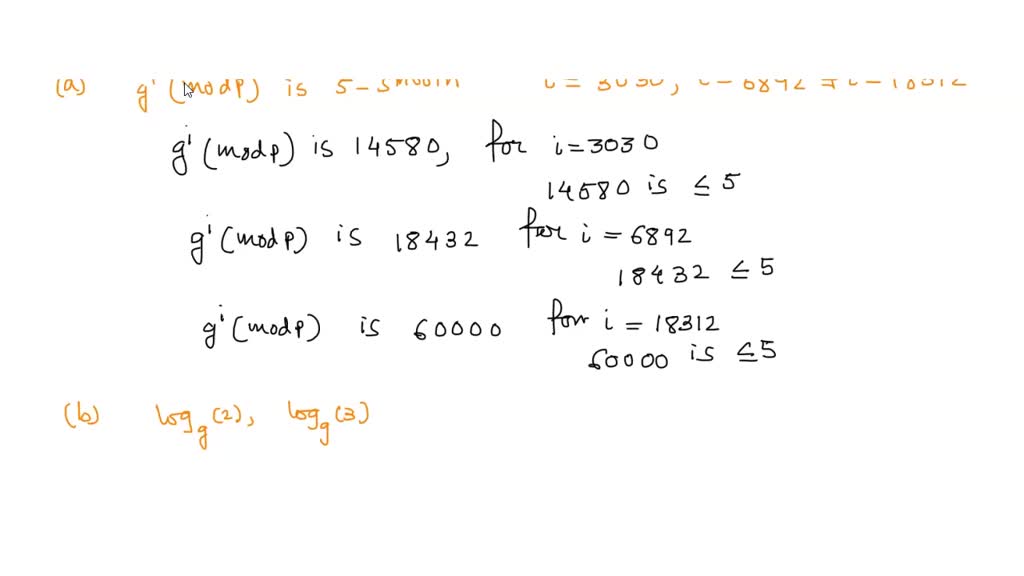 (a) g^i (mod p) is 5-smooth i = 3030, i = 6892 & i = 18312
g^i (mod p) is 14580, for i = 3030
14580 is ≤ 5
g^i (mod p) is 18432 for i = 6892
18432 ≤ 5
g^i (mod p) is 60000 for i = 18312
60000 is ≤ 5
(b) log_g (2), log_g (3)